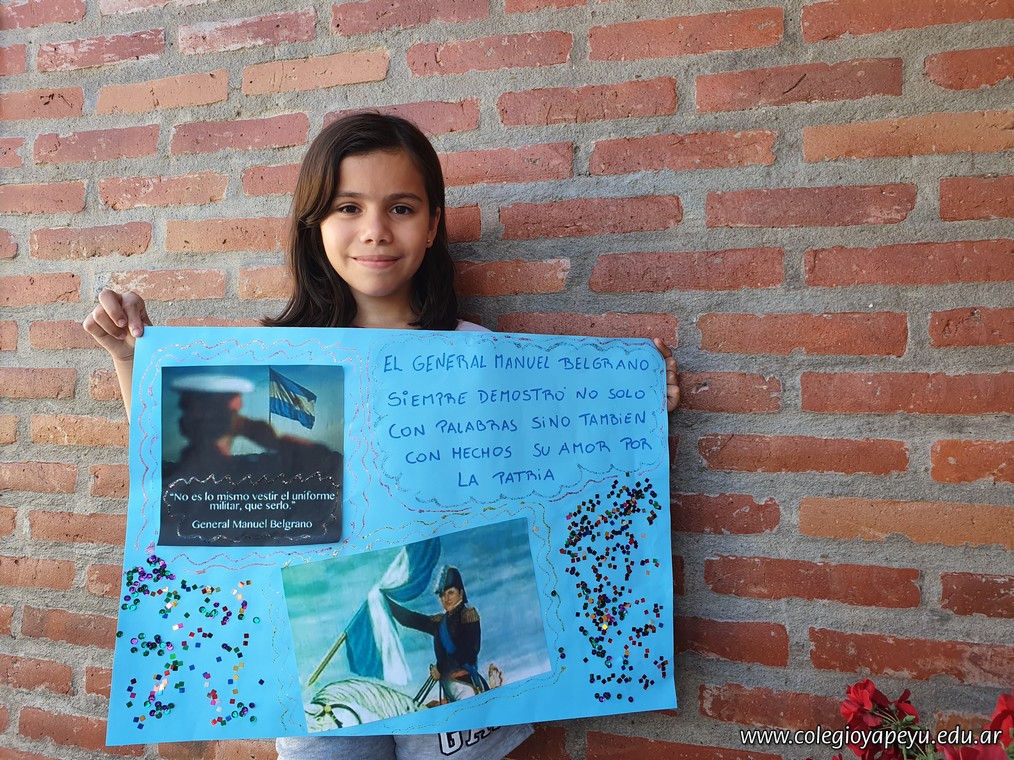 EL GENERAL MANUEL BELGRANO
SIEMPRE DEMOSTRÓ NO SOLO
CON PALABRAS SINO TAMBIEN
CON HECHOS SU AMOR POR
LA PATRIA
"No es lo mismo vestir el uniforme
militar, que serlo."
General Manuel Belgrano
www.colegioyapeyu.edu.ar